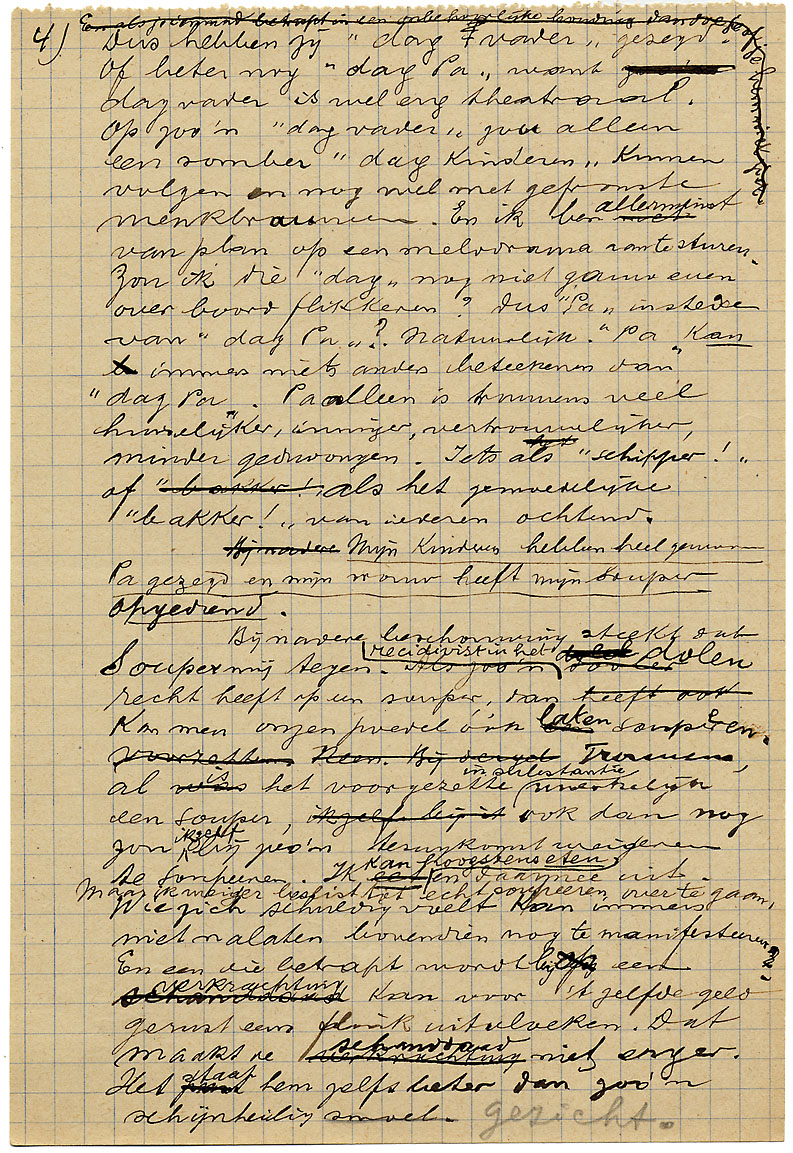 4) En als zoo iemand betrapt in een onbehoorlijke houding dan
Dus hebben zij "dag vader" gezegd.
Of beter nog "dag Pa", want
dag vader is wel erg theatraal.
Op zoo'n "dag vader" zou alleen
een somber "dag kinderen" kunnen
volgen en nog wel met gefronste
wenkbrauwen. En ik ben allerminst
van plan op een melodrama aan te sturen.
Zou ik die "dag" nog niet gauw even
over boord flikkeren? Dus "Pa" instede
van "dag Pa"? Natuurlijk. "Pa" kan
immers niets anders beteekenen dan
"dag Pa". Pa alleen is trouwens veel
huiselijker, inniger, vertrouwelijker,
minder gedwongen. Iets als "schipper!"
of "bakker! als het gemoedelijke
"bakker!" van iederen ochtend.
Bij nadere Mijn kinderen hebben heel gewoon
Pa gezegd en mijn vrouw heeft mijn souper
opgediend.
Bij nadere beschouwing steekt dat
recidivist in het
Souper mij tegen. Als zoo'n dolen
recht heeft op een souper, dan heeft ook
kan men onzen poedel óók laten soupeeren.
voorzetten. Neen. Bij Trouwens,
in substantie
al was is het voorgezette werkelijk
een souper, ook dan nog
zou ikzelf bij zoo'n terugkomst weigeren
kan hoogstens eten
te soupeeren. Ik eet en daarmee uit.
Maar ik weiger beslist tot echt soupeeren over te gaan.
Wie zich schuldig voelt kan immers
niet nalaten bovendien nog te manifesteeren?
En een die betrapt wordt bij een
verkrachting
schanddaad kan voor 't zelfde geld
gerust eens flink uitvloeken. Dat
schanddaad
maakt de verkrachting niet erger.
staat
Het hem zelfs beter dan zoo'n
schijnheilig smoel. gezicht.